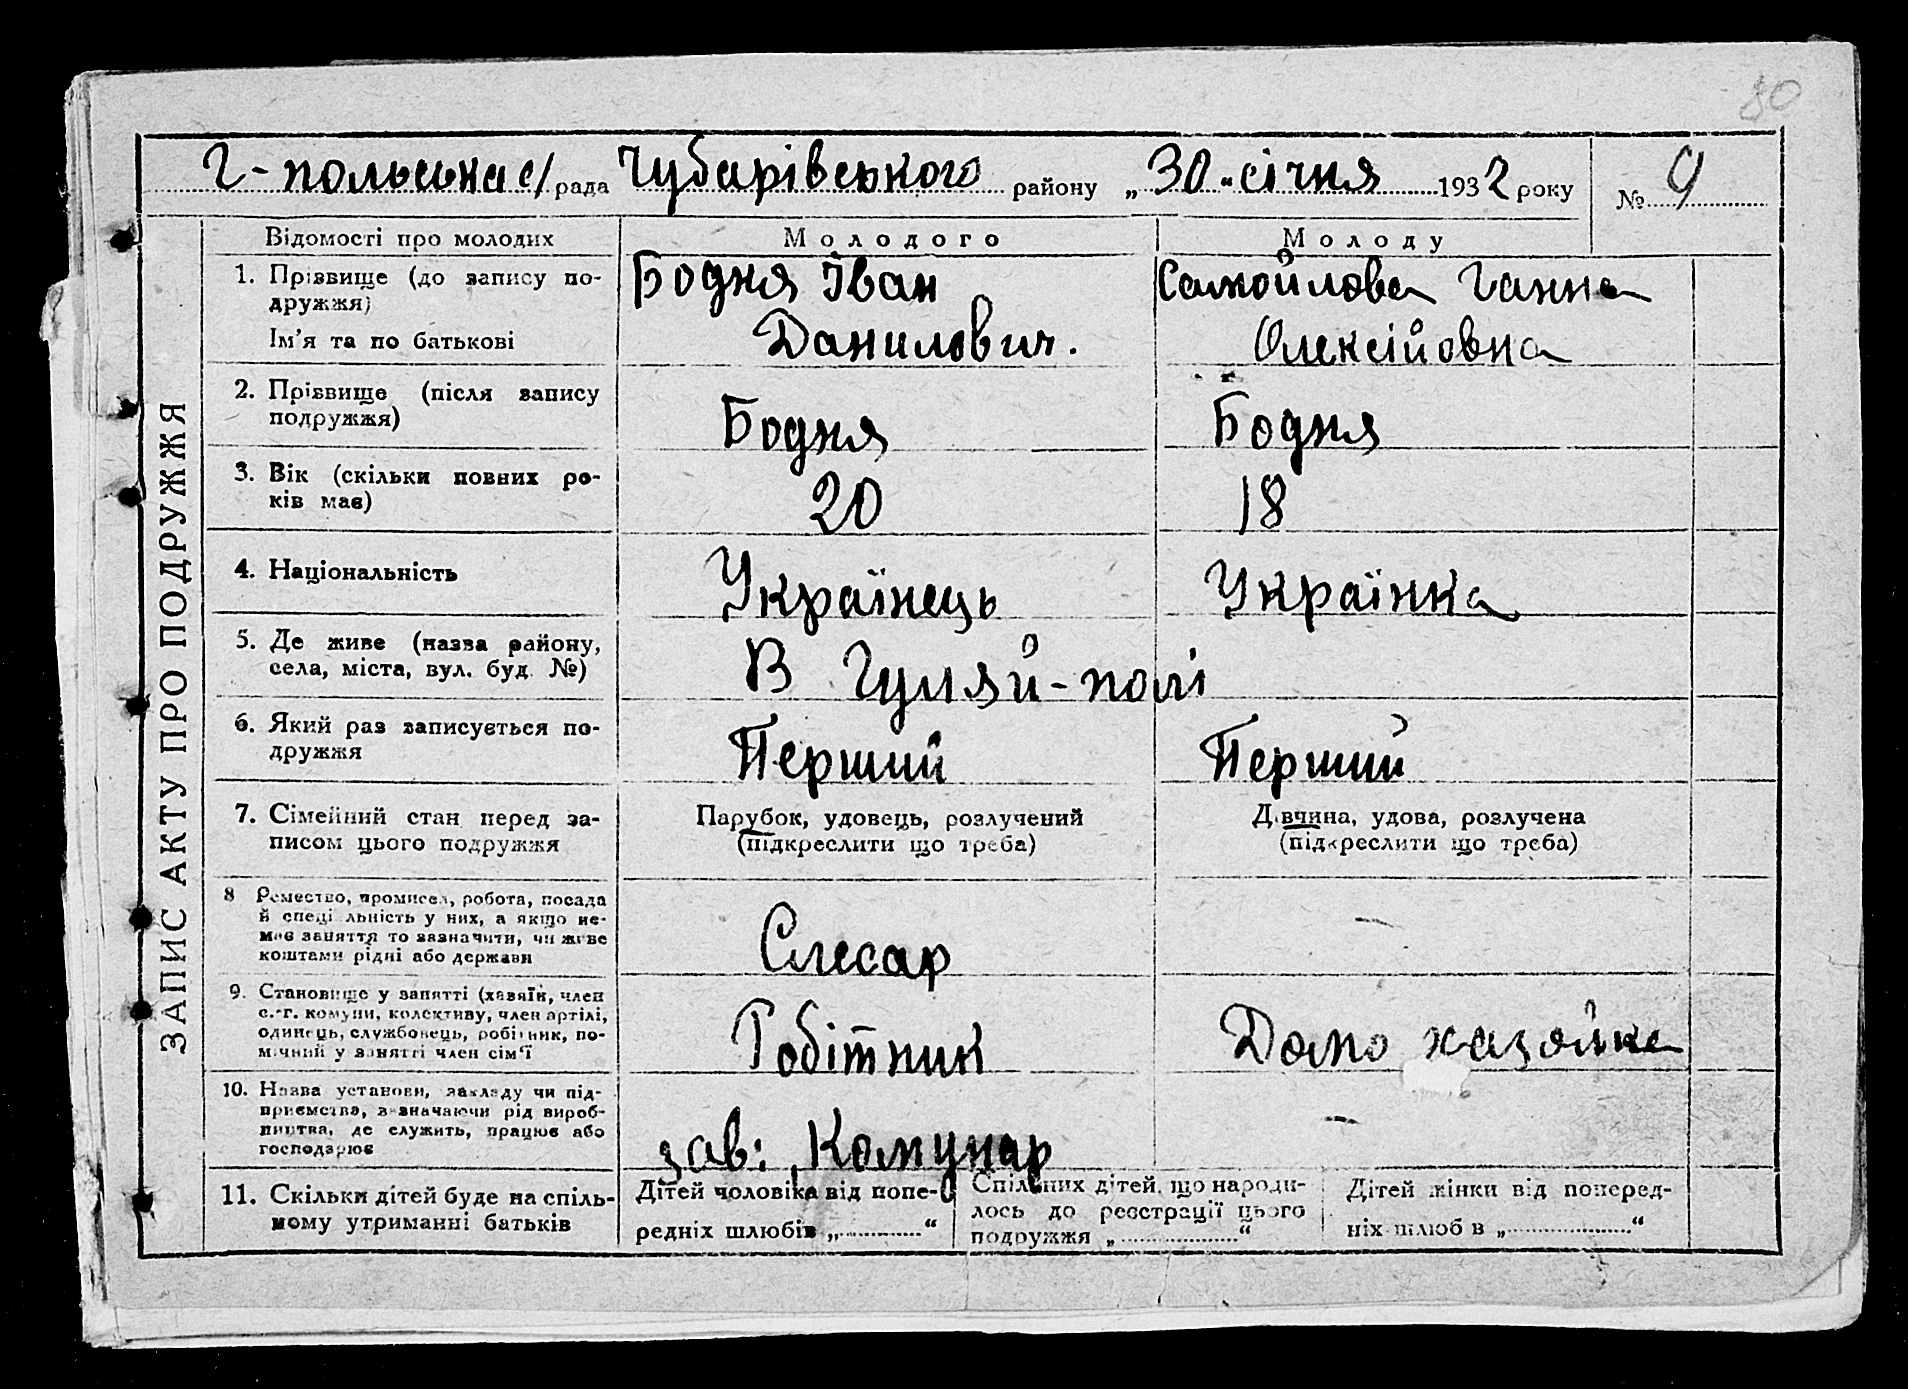 80
Г-польська с/рада Чубарівського району „30“ січня 1932 року № 9
ЗАПИС АКТУ ПРО ПОДРУЖЖЯ
Відомості про молодих
Молодого
Молоду
1. Прізвище (до запису подружжя)
Ім'я та по батькові
Бодня Іван
Данилович.
Самойлова Ганна
Олексійовна
2. Прізвище (після запису
подружжя)
Бодня
Бодня
3. Вік (скільки повних ро-
ків має)
20
18
4. Національність
Українець
Українка
5. Де живе (назва району,
села, міста, вул. буд. №)
В Гуляй-полі
6. Який раз записується по-
дружжя
Перший
Перший
7. Сімейний стан перед за-
писом цього подружжя
Парубок, удовець, розлучений
(підкреслити що треба)
Дівчина, удова, розлучена
(підкреслити що треба)
8 Ремество, промисел, робота, посада
й спеціальність у них, а якщо не-
має заняття то зазначити, чи живе
коштами рідні або держави
Слесар
—
9. Становище у занятті (хазяїн, член
с.-г. комуни, колективу, член артілі,
одинець, службовець, робітник, по-
мічний у занятті член сім'ї
Робітник
Домо хазяйка
10. Назва установи, закладу чи під-
приємства, зазначаючи рід вироб-
ництва, де служить, працює або
господарює
зав: Комунар
—
11. Скільки дітей буде на спіль-
ному утриманні батьків
Дітей чоловіка від попе-
редніх шлюбів „ “
Спільних дітей, що народи-
лось до реєстрації цього
подружжя „ “
Дітей жінки від поперед-
ніх шлюбів „ “